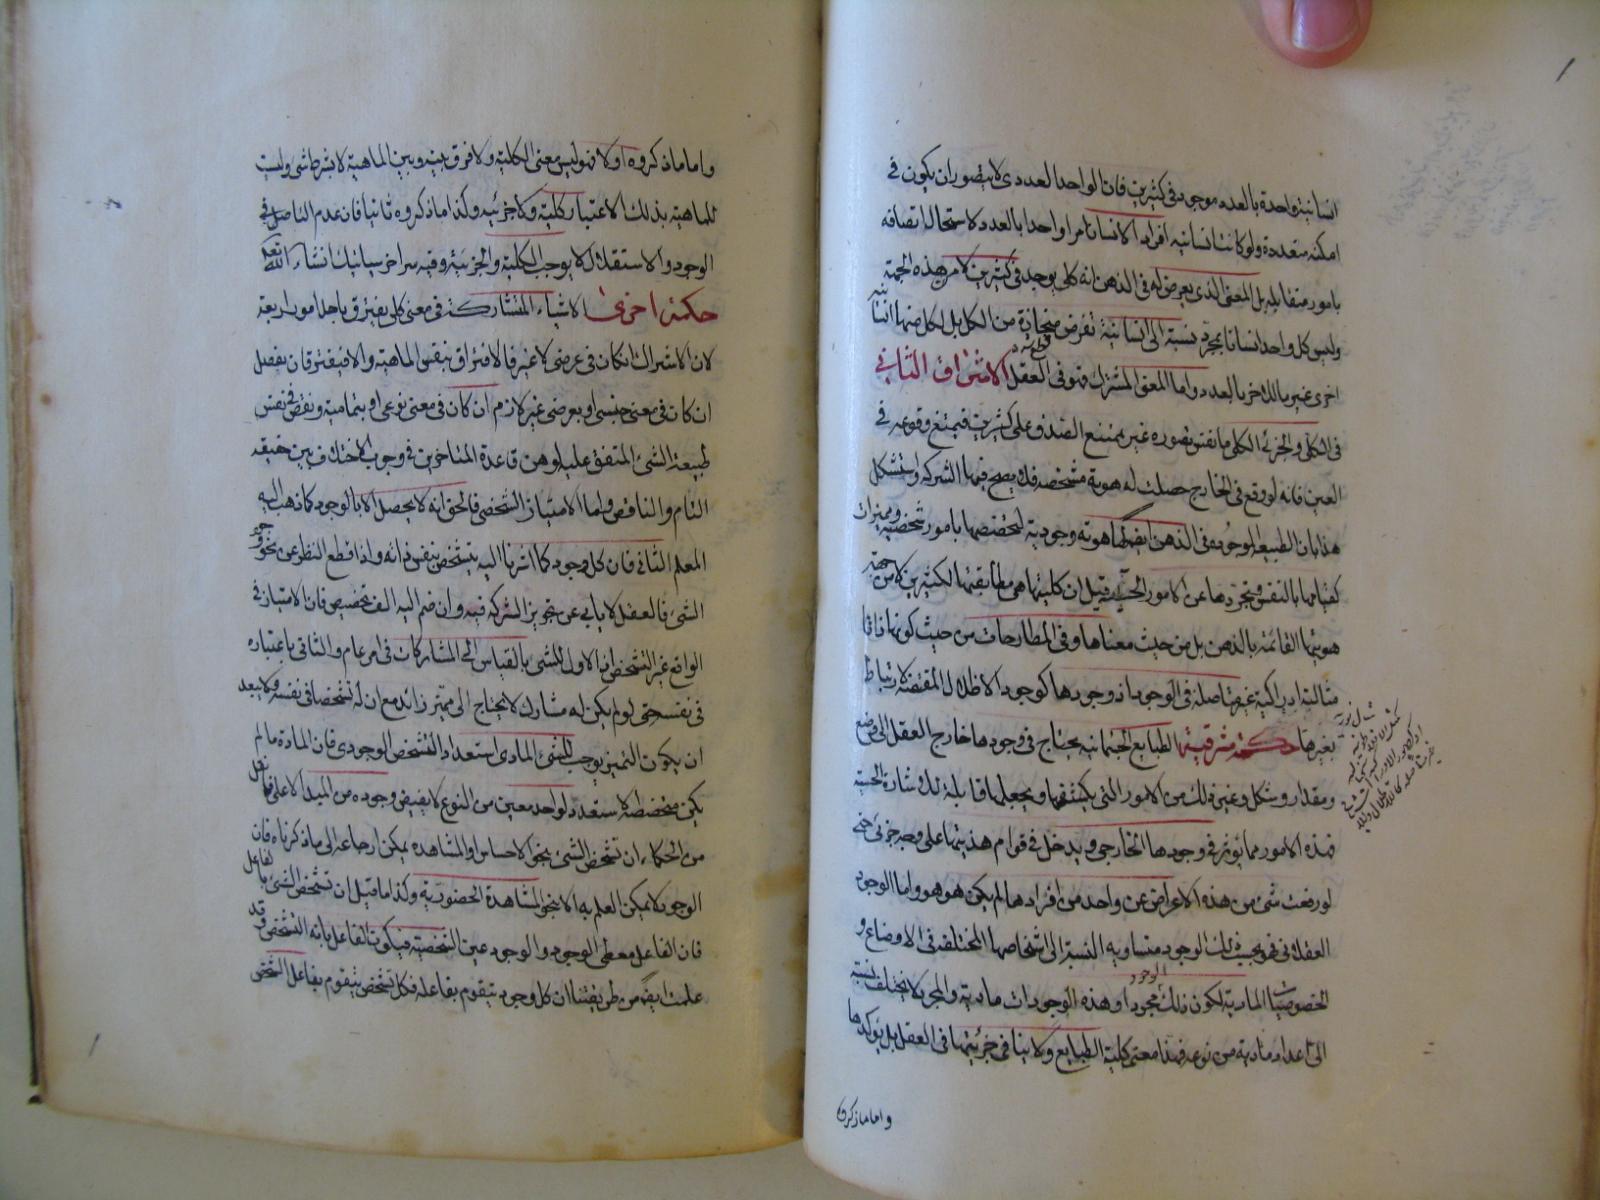 انسانية واحدة بالعدد موجودة في كثيرين فان الواحد العددي لا يتصور ان يكون في
امكنة متعددة ولو كانت انسانيه افراد الانسان امرا واحدا بالعدد لاستحال اتصافه
بامور متقابله بل المعنى الذي يعرض له في الذهن انه كلي يوجد في كثيرين لامن هذه الجهة
وليس كل واحد انسانا بمجرد نسبة الى انسانية تفرض منحازة من الكل بل لكل منها انسانية
اخرى غير ما للاخر بالعدد واما المعنى المشترك فهو في العقل الاشراق الثاني
في الكلي والجزئي الكلي ما نفس تصوره غير ممتنع الصدق على كثيرين فيمتنع وقوعه في
العين فانه لو وقع في الخارج حصلت له هوية متشخصه فلا يصح فيها الشركه واستشكل
هذا بان الطبيعه الموجوده في الذهن ايضا لها هويه وجودية لتخصصها بامور شخصية ومميزات
كقيامها بالنفس وتجردها عن الامور فقيل ان كليتها هي مطابقتها لكثيرين لا من جهة
هويتها القائمة بالذهن بل من حيث معناها وفي المطارحات من حيث كونها ذاتا
مثالية ادراكية غير متاصله في الوجود اذ وجودها كوجود الاظلال المقتضية لارتباط
بغيرها حكمة مشرقية الطبايع الجسمانيه يحتاج في وجودها خارج العقل الى وضع
ومقدار وشكل وغير ذلك من الامور التي يكتنفها ويجعلها قابلة للاشارة الحسية
فهذه الامور مما يؤثر في وجودها الخارجي ويدخل في قوام هذيتها على وجه جزئي حتى
لو رفعت شئ من هذه الاعراض عن واحد من افرادها لم يكن هو هو واما الوجود
العقلاني فهو بحيث ذلك الوجود متساويه النسبة الى اشخاصها المختلفه في الاوضاع و
الخصوصيات المادية لكون ذلك الوجود مجردا وهذه الوجودات مادية والمجرد لا يختلف نسبته
الى اعداد مادية من نوعه فهذا معنى كلية الطبايع ولا ينافي جزئيتها في العقل بل يؤكدها
واما ما ذكروه
واما ما ذكروه اولا فهو ليس معنى الكلية ولا فرق بينه وبين الماهية لا بشرط شئ وليست
للماهية بذلك الاعتبار كلية ولا جزئيه وكذا ما ذكروه ثانيا فان عدم التاصل في
الوجود والاستقلال لا يوجب الكلية والجزئية وفيه سر اخر سياتيك انشاء الله تعالى
حكمة اخرى الاشياء المتشاركة في معنى كلي يفترق باحد امور اربعة
لان الاشتراك ان كان في عرضي لا غير فالافتراق بنفس الماهية والا فيفترقان بفصل
ان كان في معنى جنسي او بعرضي غير لازم ان كان في معنى نوعي او بتمامية ونقص في نفس
طبيعة الشئ المتفق عليه لوهن قاعدة المتاخرين في وجوب الاختلاف بين حقيقه
التام والناقص واما الامتياز الشخصي فالحق انه لا يحصل الا بالوجود كما ذهب اليه
المعلم الثاني فان كل وجود كما اشرنا اليه يتشخص بنفس ذاته واذا قطع النظر عن نحو وجود
الشئ فالعقل لا يابي عن تجويز الشركه فيه وان ضم اليه الف تخصيص فان الامتياز في
الواقع غير التشخص اذ الاول للشئ بالقياس الى المشاركات في امر عام والثاني باعتباره
في نفسه حتى لو لم يكن له مشارك لا يحتاج الى مميز زائد مع ان له تشخصا في نفسه ولا يبعد
ان يكون التميز يوجب للشئ المادي استعداد التشخص الوجودي فان المادة ما لم
يكن متخصصه الاستعداد لواحد معين من النوع لا يفيض وجوده من المبدا الاعلى فما نقل
من الحكماء ان تشخص الشئ بنحو الاحساس او المشاهده يمكن ارجاعه الى ما ذكرناه فان
الوجود لا يمكن العلم به الا بنحو المشاهدة الحضورية وكذا ما قيل ان تشخص الشئ بفاعل لفاعل
فان الفاعل معطى الوجود والوجود عين التشخص فيكون الفاعل ما به التشخص وقد
علمت ايضا من طريقتنا ان كل وجود يتقوم بفاعله فكل تشخص يتقوم بفاعل الشخص